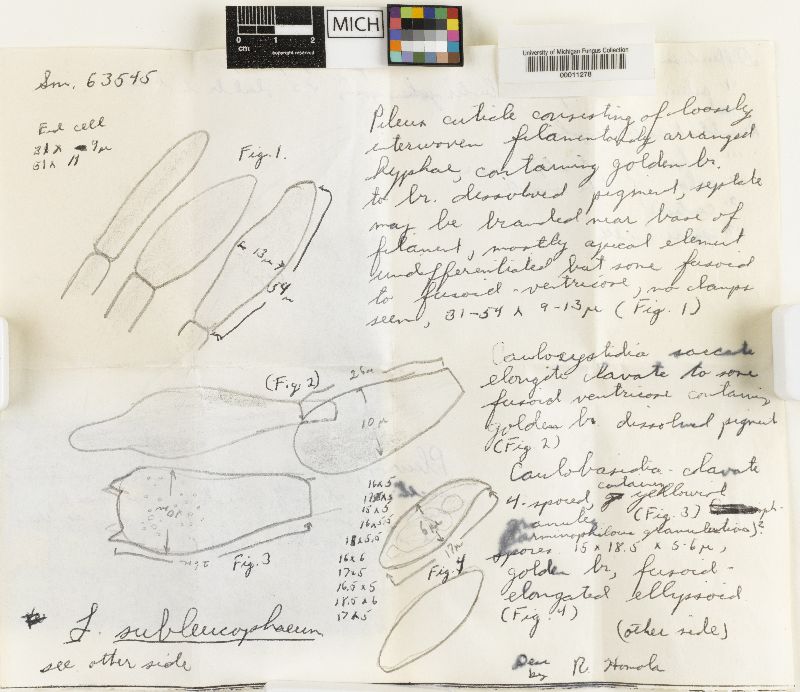 cm 1 2
copyright reserved
MICH
University of Michigan Fungus Collection
00011278
Sm. 63545
End cell
31 x 9 µ
51 x 11
Fig. 1.
13 µ
54 µ
Pileus cuticle consisting of loosely
interwoven filamentously arranged
hyphae, containing golden br.
to br. dissolved pigment, septate
may be branched near base of
filament, mostly apical element
undifferentiated but some fusoid
to fusoid-ventricose, no clamps
seen, 31-54 x 9-13 µ (Fig. 1)
(Fig. 2)
25µ
10 µ
Caulocystidia saccate
elongate clavate to some
fusoid ventricose containing
golden br. dissolved pigment
(Fig 2)
Caulobasidia - clavate
4-spored, containing yellowish
granules (Fig. 3)
(carminophilous granulations)?
spores 15 x 18.5 x 5-6 µ,
golden br, fusoid-
elongated ellipsoid
(Fig. 4)
(other side)
Desc by R. Homola
10µ
26µ
Fig. 3
16 x 5
15 x 5
16 x 5.5
18 x 5.5
16 x 6
17 x 5
16.5 x 5
18.5 x 6
17 x 5
6µ
17µ
Fig. 4
L. subleucophaeum
see other side